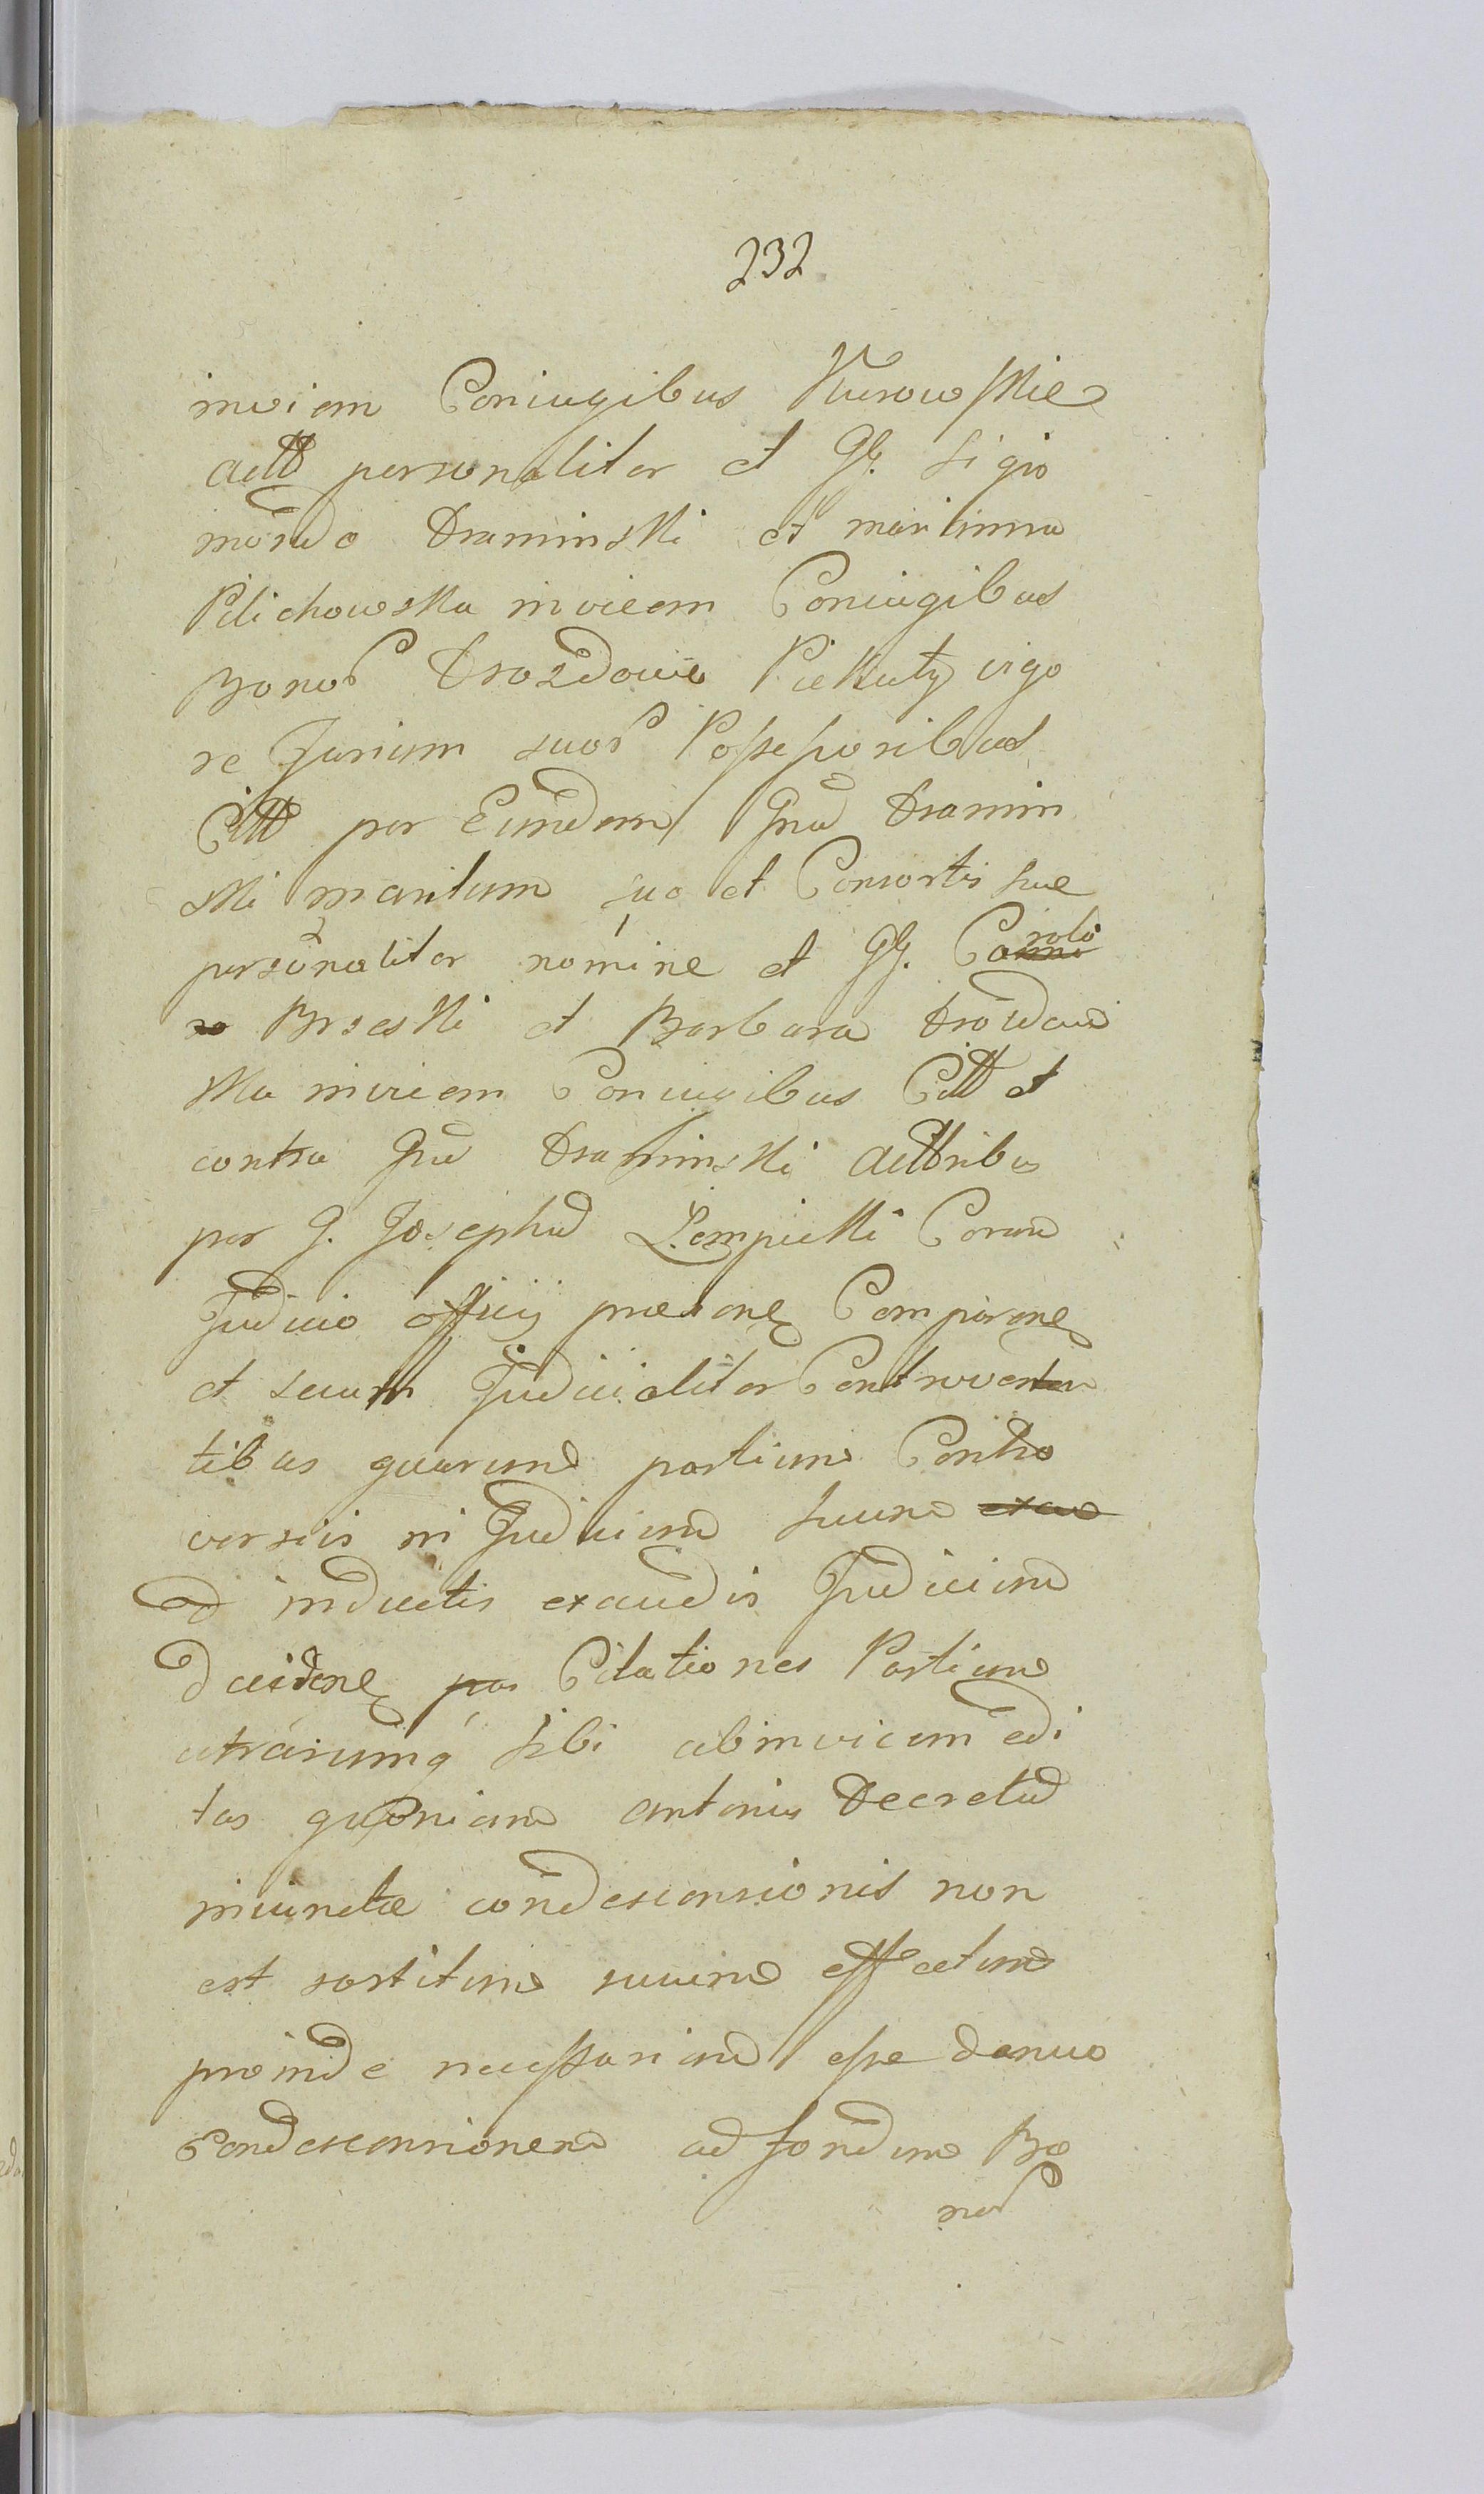 232
inviem Coniugibus Kurowskie
actt personaliter et GG. Sigis
mundo Draminski et marianna
Pilichowska invicem Coniugibus
Bonor Drozdowie Piekuty vigo
re Jurium suor Possessoribus
Citt per Eundem Gnd Dramin
ski maritum suo et Consortis sue
personaliter nomine et GG. Ca roli
Brzeski et Barbara
ska invicem Coniugibus Citt et
contra Gnd Draminski acttribus
per G. Josephud Lempicki Coram
Judicio officij
et secum Judicialiter Controverten
tibus quarum partium Contro
versiis in Judicium suum exau
d inductis exaudis Judicium
par Citationes Partium
utrarumq sibi abinvicem edi
tas quoniam anterius Decretud
iniunctae condescensionis non
est sortitum suum effectum
proinde necessarium esse denuo
Condescensionem ad fondum Bo
nor